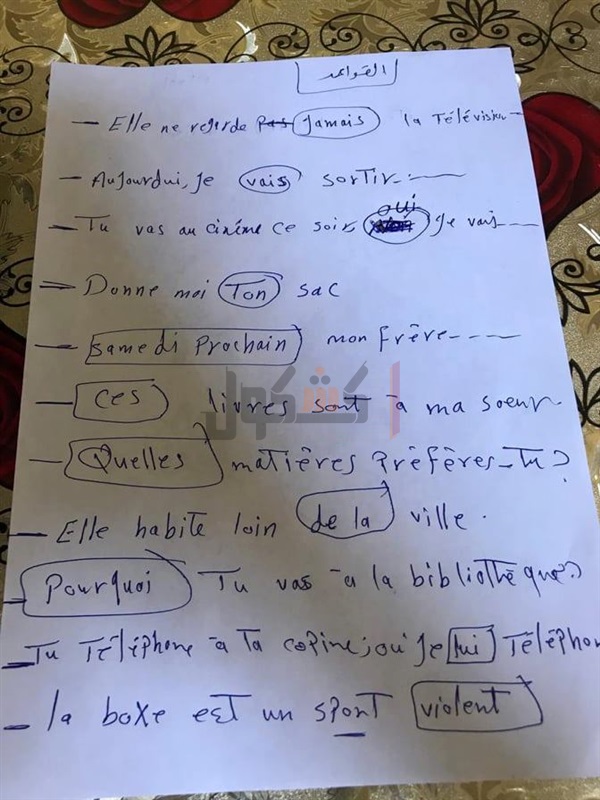 القواعد
— Elle ne regarde pas jamais la Télévision —
— Aujourdui, je vais sortir. - - -
— Tu vas au cinéme ce soir, oui je vais - - -
— Donne moi Ton sac
— samedi prochain mon frère - - - -
— ces livres sont à ma soeur
كشكول
— Quelles matières préfères-Tu ?
— Elle habite loin de la ville.
— Pourquoi Tu vas à la bibliothèque ?
— Tu Téléphone à Ta copine, oui je lui Téléphon
— la boxe est un spont violent